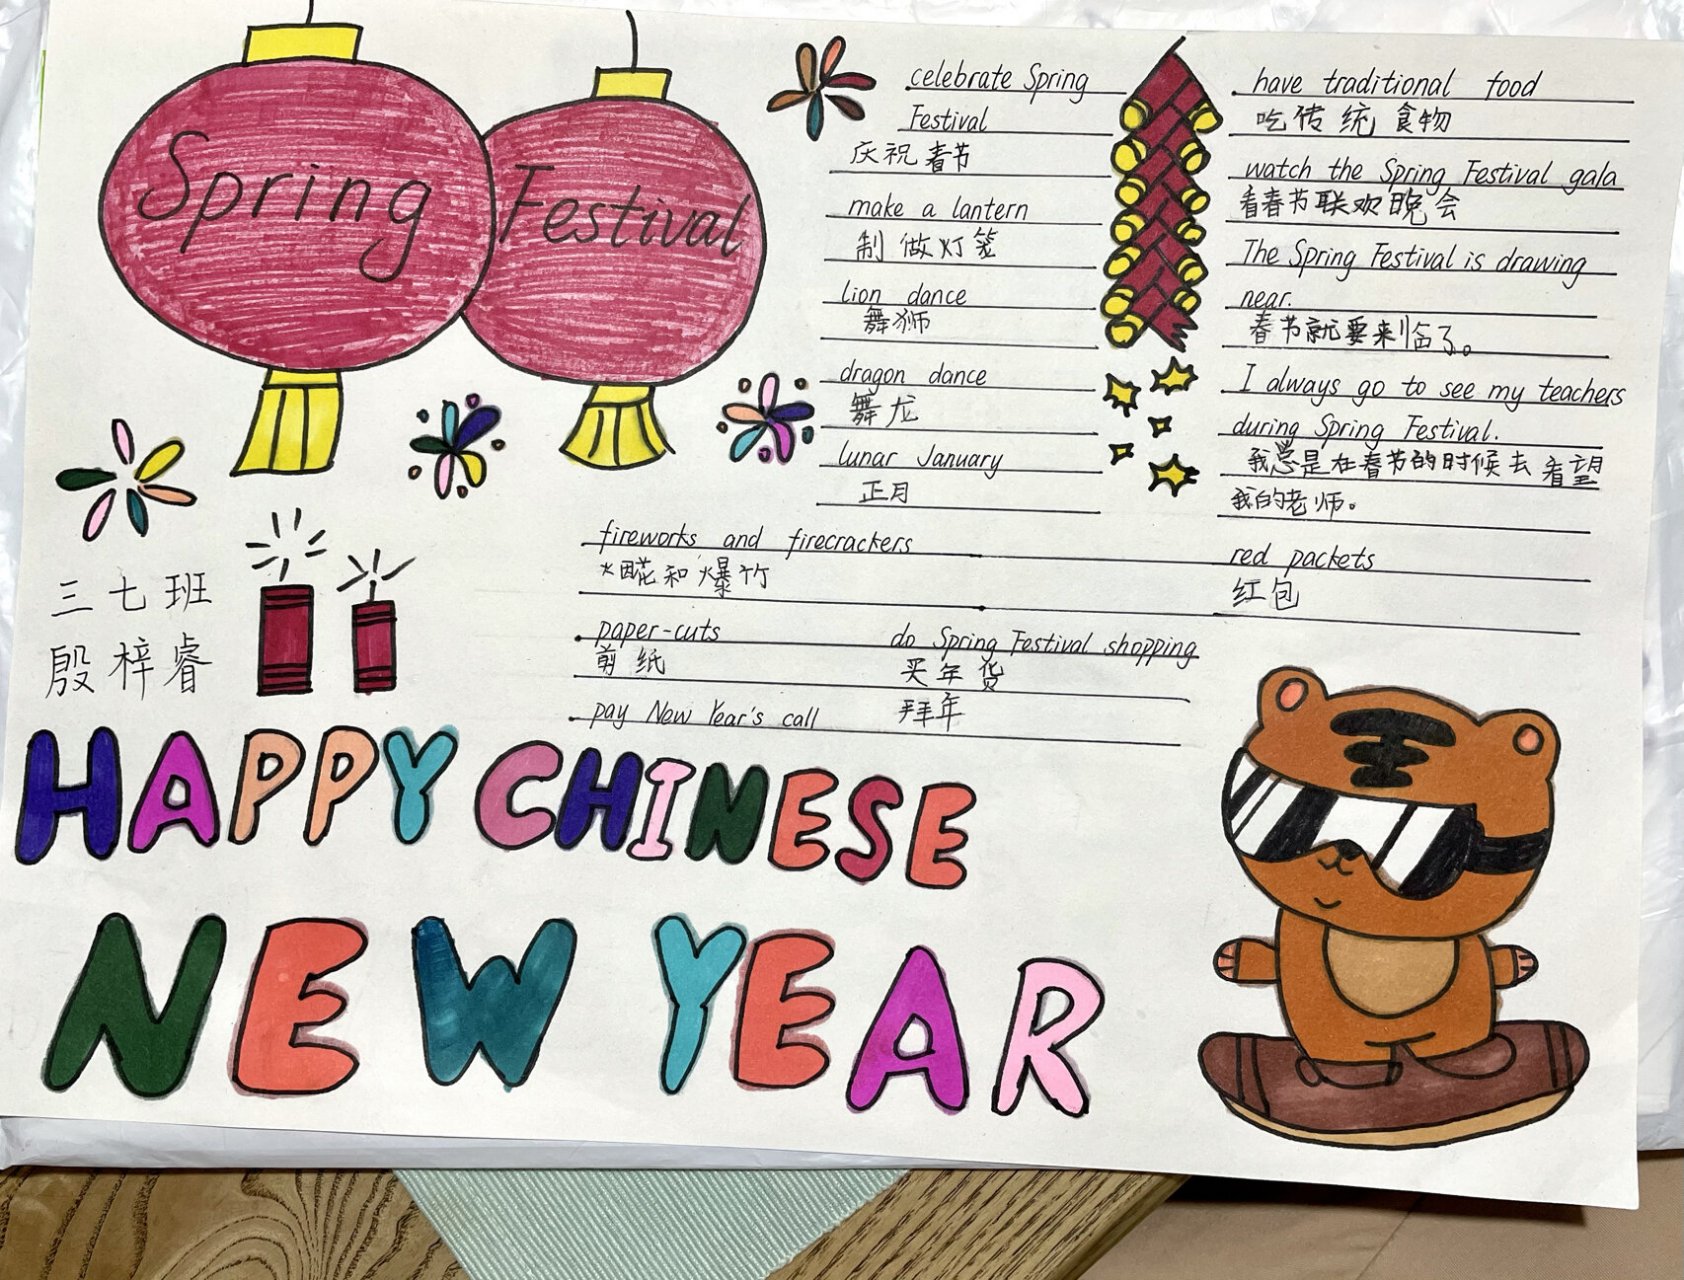 Spring Festival
celebrate Spring
Festival
庆祝春节
make a lantern
制做灯笼
lion dance
舞狮
dragon dance
舞龙
lunar January
正月
have traditional food
吃传统食物
watch the Spring Festival gala
看春节联欢晚会
The Spring Festival is drawing
near.
春节就要来临了。
I always go to see my teachers
during Spring Festival.
我总是在春节的时候去看望
我的老师。
fireworks and firecrackers
烟花和爆竹
red packets
红包
paper-cuts
剪纸
do Spring Festival shopping
买年货
pay New Year's call 拜年
三七班
殷梓睿
HAPPY CHINESE
NEW YEAR